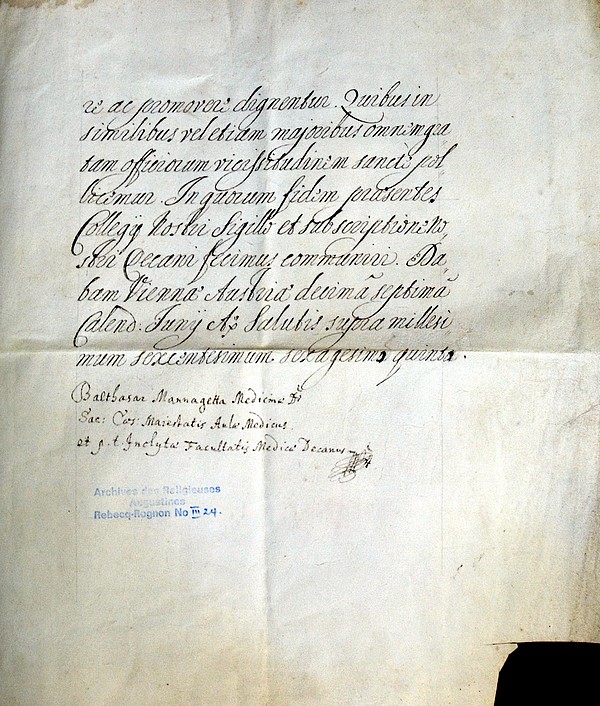 re ac promovere dignentur. Quibus in
similibus vel etiam majoribus omnem gra
tam officiorum vicissitudinem sancte pol
licemur. In quorum fidem præsentes
Collegÿ Nostri Sigillo et subscriptione No,
stri Decani fecimus communiri. Da
bam Viennæ Austriæ decimâ septimâ
Calend: Junÿ Aõ Salutis supra millesi
mum sexcentesimum sexagesimo quinto.
Balthasar Mannagetta Medicinæ Dr
Sac: Cæs: Maiestatis Aulæ Medicus
et p. t. Inclytæ Facultatis Medicæ Decanus
Archives des Religieuses
Augustines
Rebecq-Rognon No III 24.